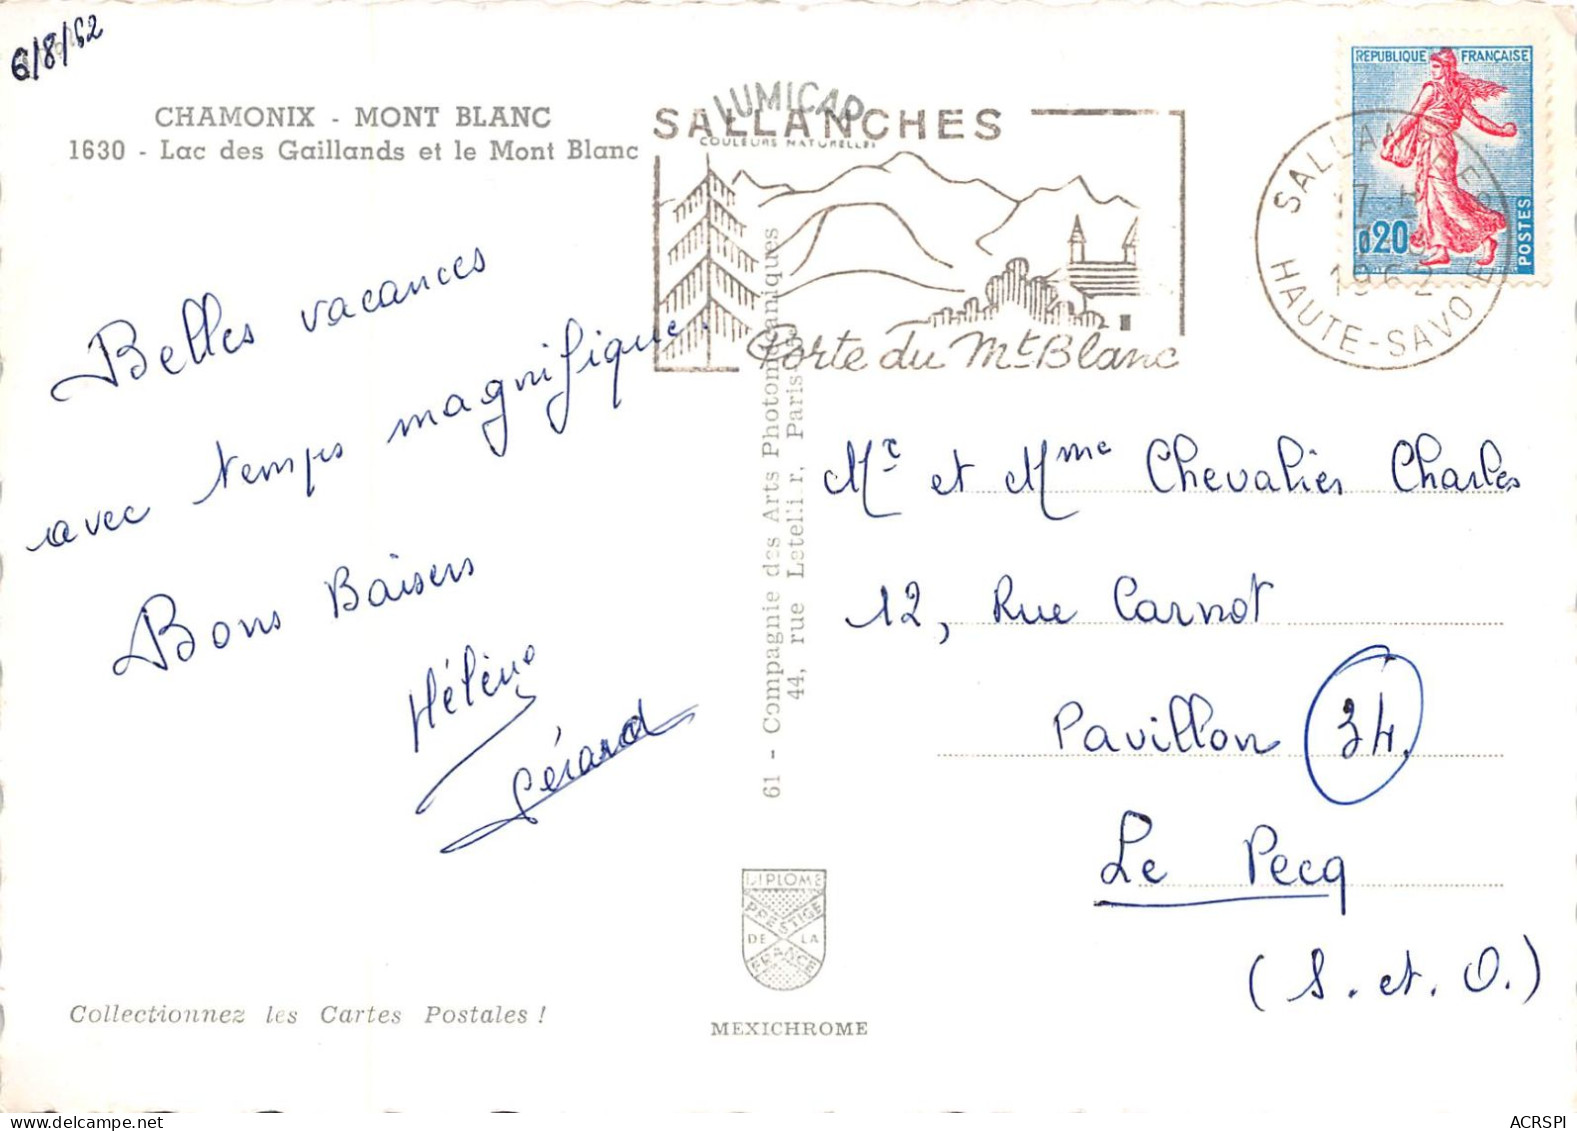 6/8/62
CHAMONIX - MONT BLANC
1630 - Lac des Gaillands et le Mont Blanc
LUMICAP
COULEURS NATURELLES
SALLANCHES
Porte du Mt Blanc
REPUBLIQUE FRANÇAISE
0,20
POSTES
SALLANCHES
1962
HAUTE-SAVOIE
Belles vacances
avec temps magnifique.
Bons Baisers
Hélène
Gérard
61 - Compagnie des Arts Photomécaniques
44, rue Letellier, Paris
Mr et Mme Chevalier Charles
12, Rue Carnot
Pavillon 34.
Le Pecq
(S. et. O.)
DIPLOME
PRESTIGE
DE LA
FRANCE
Collectionnez les Cartes Postales !
MEXICHROME
ACRSPI